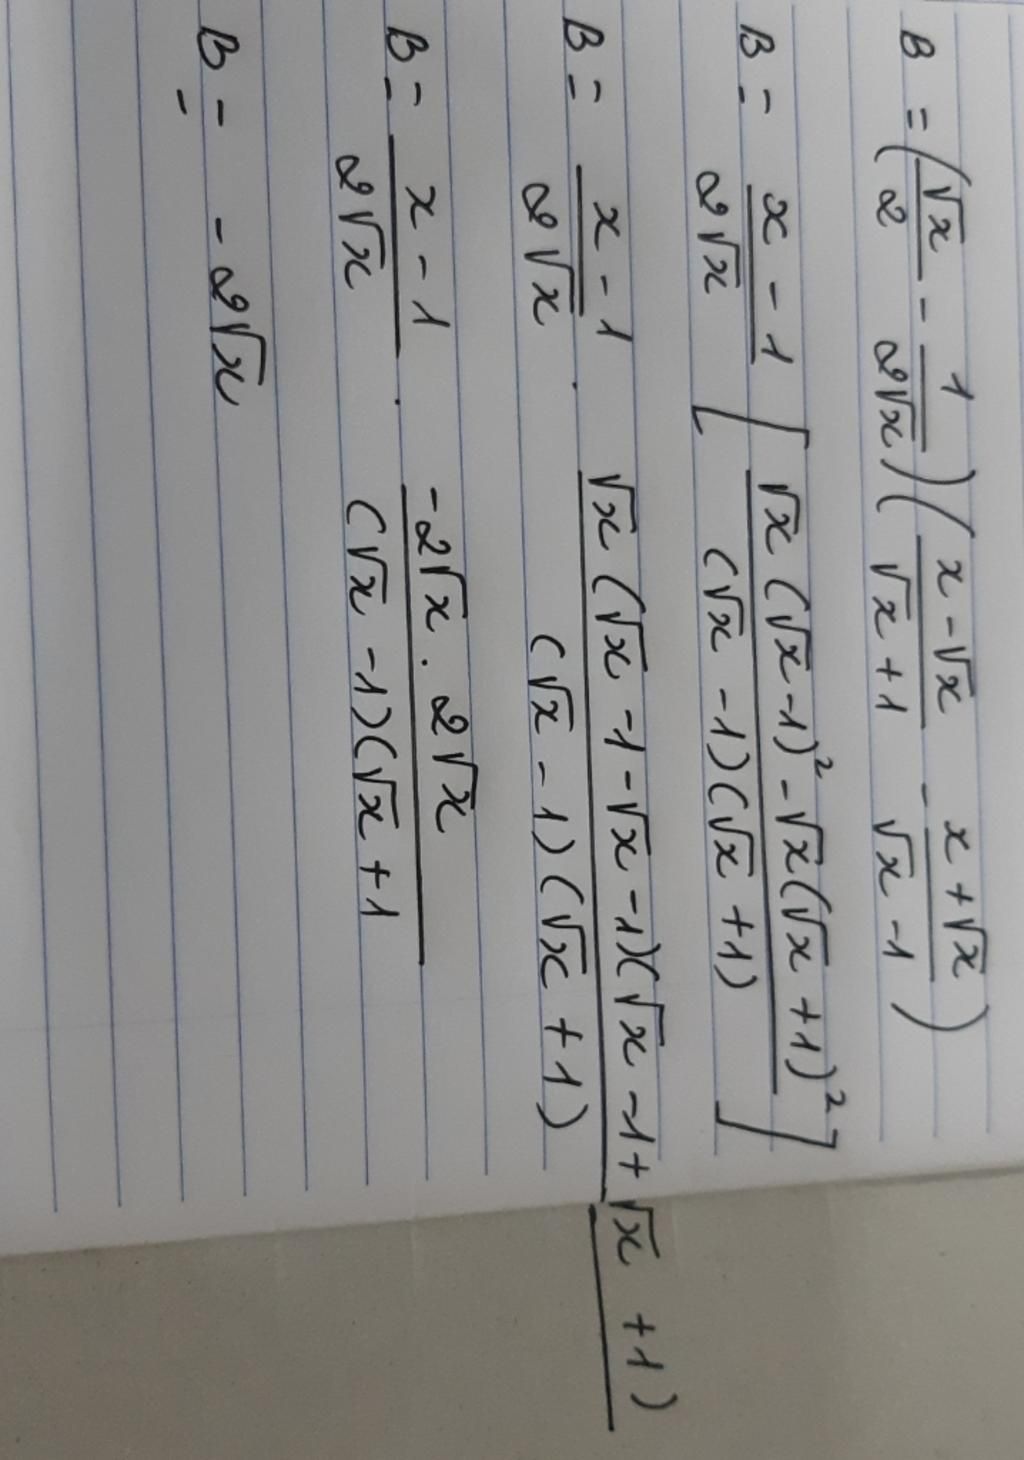 B = (√x/2 - 1/2√x)(x-√x/√x+1 - x+√x/√x-1)
B = x-1/2√x [√x(√x-1)² - √x(√x+1)²/(√x-1)(√x+1)]
B = x-1/2√x . √x(√x-1-√x-1)(√x-1+√x+1)/(√x-1)(√x+1)
B = x-1/2√x . -2√x . 2√x/(√x-1)(√x+1
B = -2√x